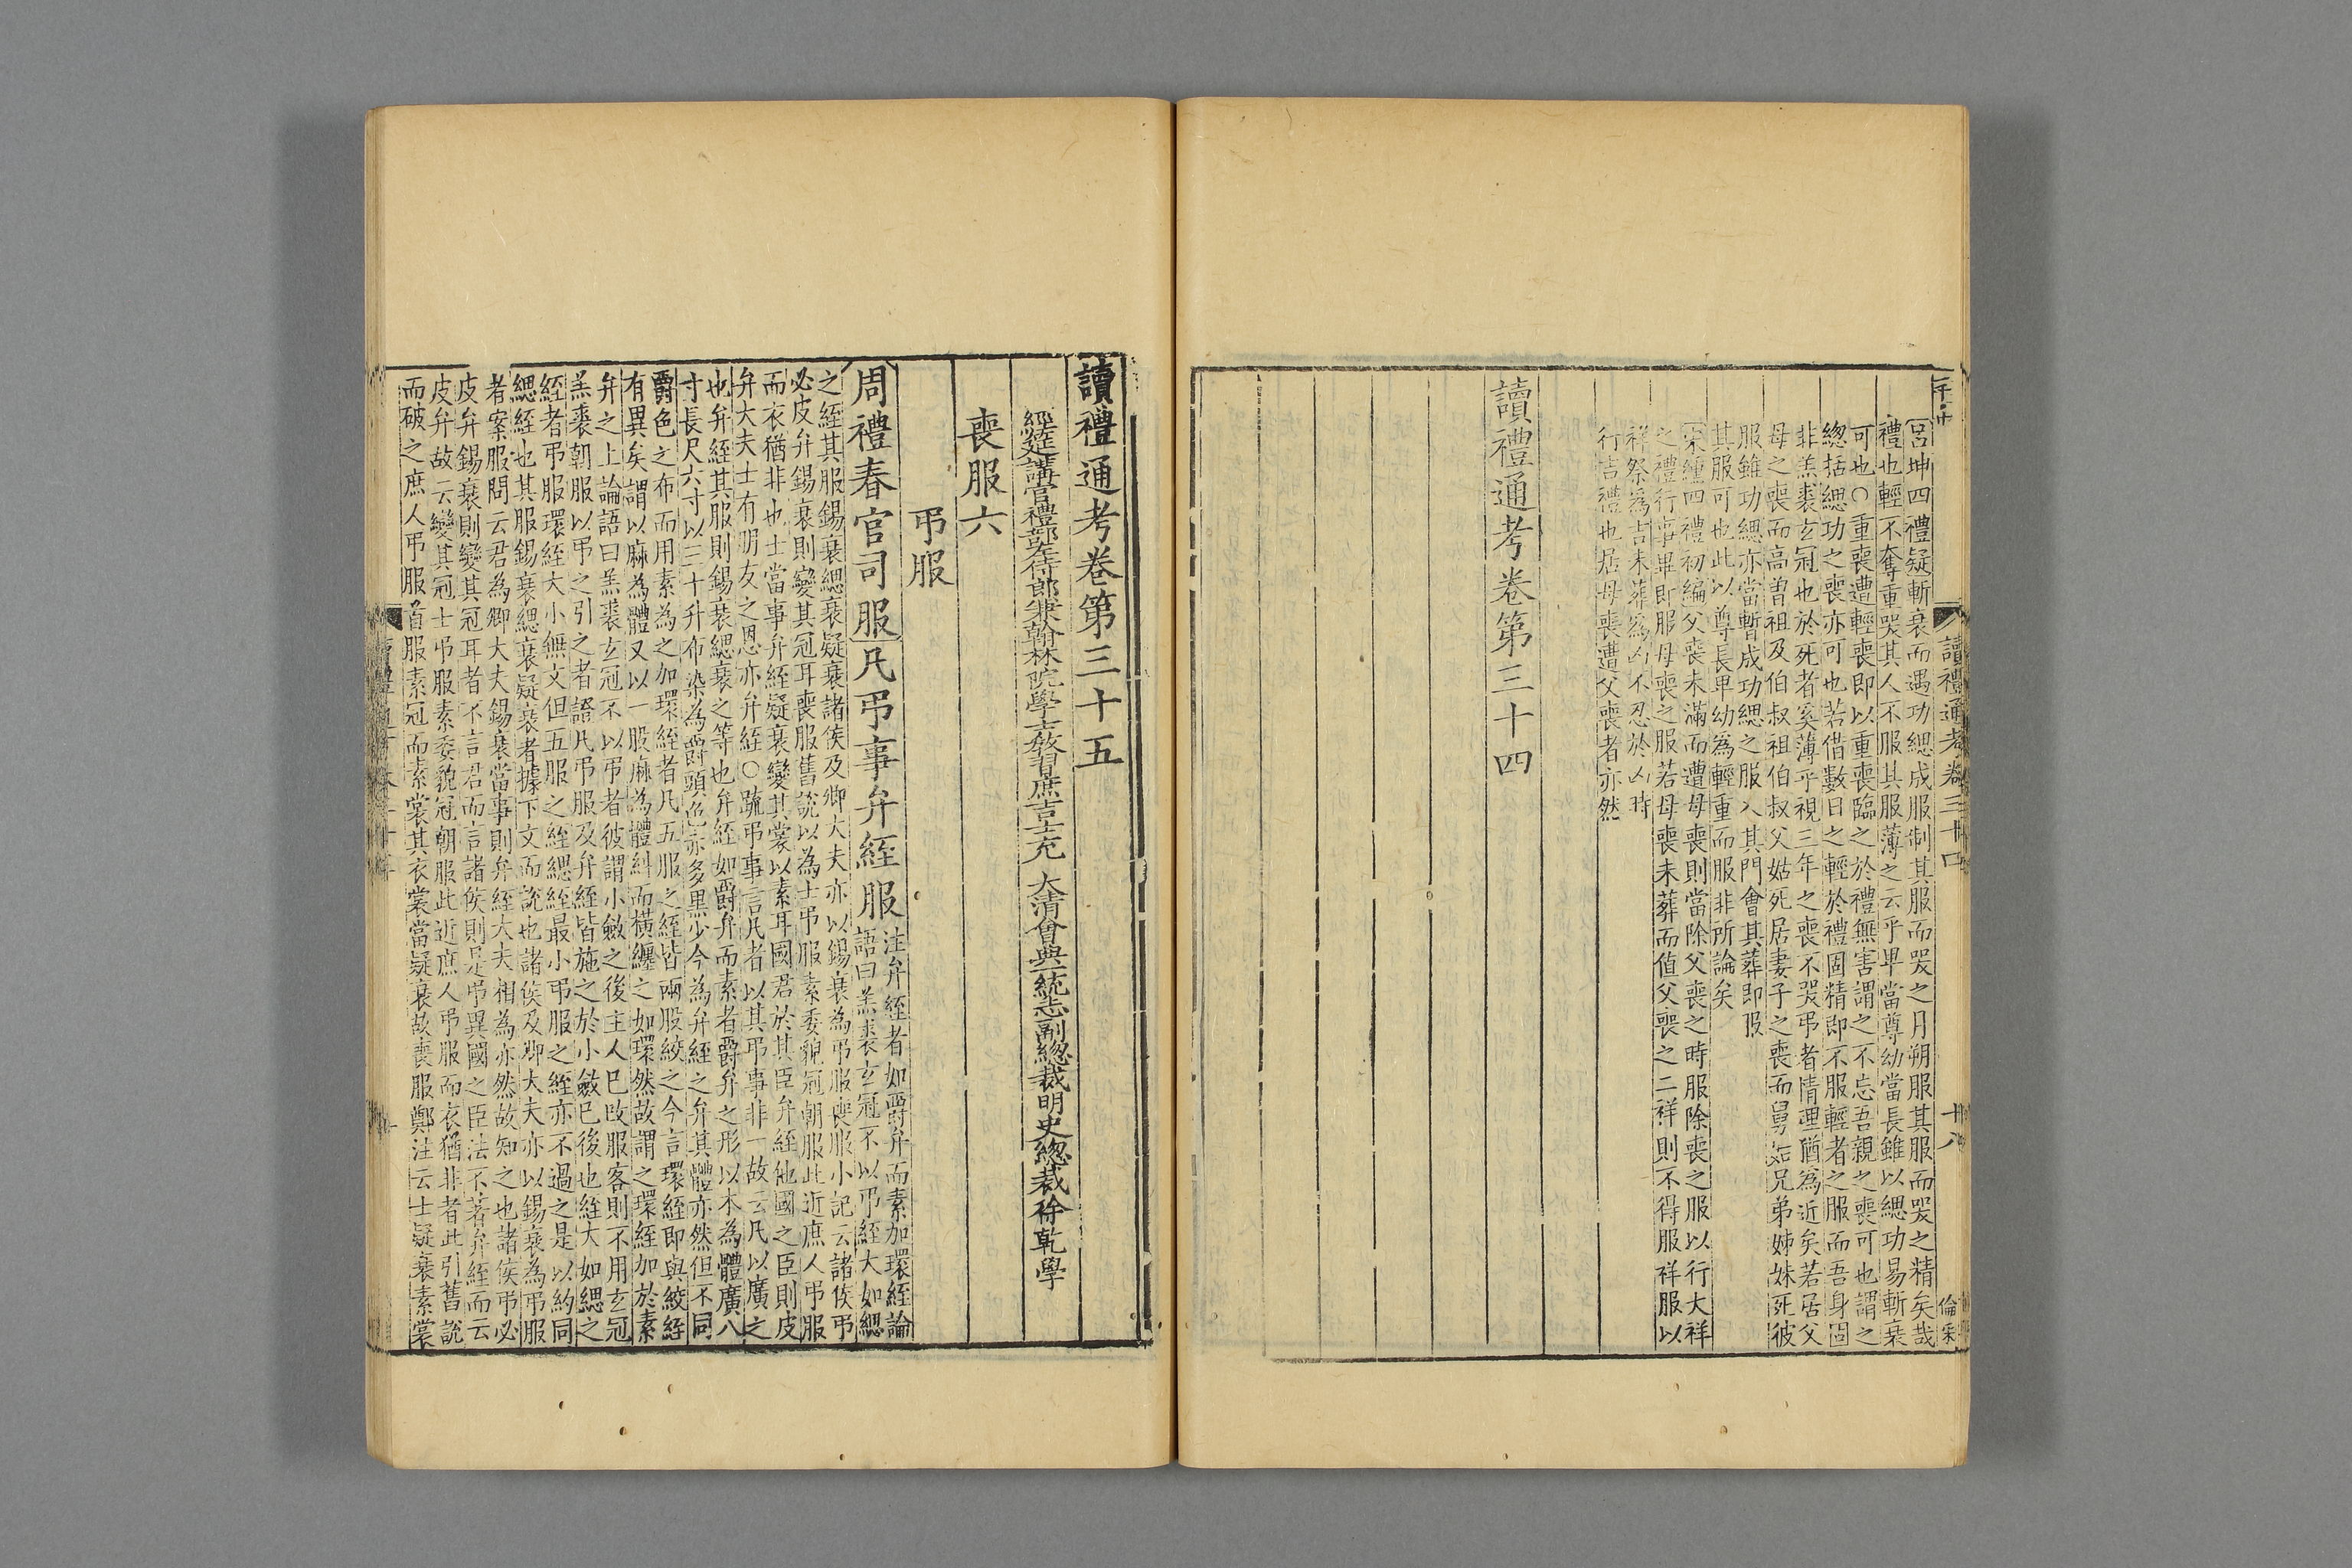 呂坤四禮疑斬衰而遇功緦成服制其服而哭之月朔服其服而哭之精矣哉
禮也輕不奪重哭其人不服其服薄之云乎卑當尊幼當長雖以緦功易斬衰
可也○重喪遭輕喪即以重喪臨之於禮無害謂之不忘吾親之喪可也謂之
總括緦功之喪亦可也若借數日之輕於禮固精即不服輕者之服而吾身固
非羔裘玄冠也於死者奚薄乎視三年之喪不哭弔者情理猶爲近矣若居父
母之喪而高曽祖及伯叔祖伯叔父姑死居妻子之喪而舅姑兄弟姊妹死彼
服雖功緦亦當暫成功緦之服入其門會其葬即
其服可也此以尊長卑幼爲輕重而服非所論矣
宋纁四禮初編父喪未滿而遭母喪則當除父喪之時服除喪之服以行大祥
之禮行事畢即服母喪之服若母喪未葬而值父喪之二祥則不得服祥服以
祥祭爲吉未葬爲凶不忍於凶時
行吉禮也居母喪遭父喪者亦然
讀禮通考卷第三十四
讀禮通考卷三十四
十八
倫采
讀禮通考卷第三十五
經筵講官禮部左侍郎兼翰林院學士敎習庶吉士充 大清會典一統志副總裁明史總裁徐乾學
喪服六
弔服
周禮春官司服凡弔事弁絰服
注弁絰者如爵弁而素加環絰論
語曰羔裘玄冠不以弔絰大如緦
之絰其服錫衰緦衰疑衰諸侯及卿大夫亦以錫衰為弔服喪服小記云諸侯弔
必皮弁錫衰則變其冠耳喪服舊說以為士弔服素委貌冠朝服此近庶人弔服
而衣猶非也士當事弁絰疑衰變其裳以素耳國君於其臣弁絰他國之臣則皮
弁大夫士有朋友之恩亦弁絰○疏弔事言凡者以其弔事非一故云凡以廣之
也弁絰其服則錫衰緦衰之等也弁絰如爵弁而素者爵弁之形以木為體廣八
寸長尺六寸以三十升布染為爵頭色赤多黑少今為弁絰之弁其體亦然但不同
爵色之布而用素為之加環絰者凡五服之絰皆兩股絞之今言環絰即與絞絰
有異矣謂以麻為體又以一股麻為體糾而橫纏之如環然故謂之環絰加於素
弁之上論語曰羔裘玄冠不以弔者彼謂小斂之後主人已改服客則不用玄冠
羔裘朝服以弔之引之者證凡弔服及弁絰皆施之於小斂已後也絰大如緦之
絰者弔服環絰大小無文但五服之絰緦絰最小弔服之絰亦不過之是以約同
緦絰也其服錫衰緦衰疑衰者據下文而說也諸侯及卿大夫亦以錫衰為弔服
者案服問云君為卿大夫錫衰當事則弁絰大夫相為亦然故知之也諸侯弔必
皮弁錫衰則變其冠耳者不言君而言諸侯則是弔異國之臣法不著弁絰而云
皮弁故云變其冠士弔服素委貌冠朝服此近庶人弔服而衣猶非者此引舊說
而破之庶人弔服首服素冠而素裳其衣裳當疑衰故喪服鄭注云士疑衰素裳